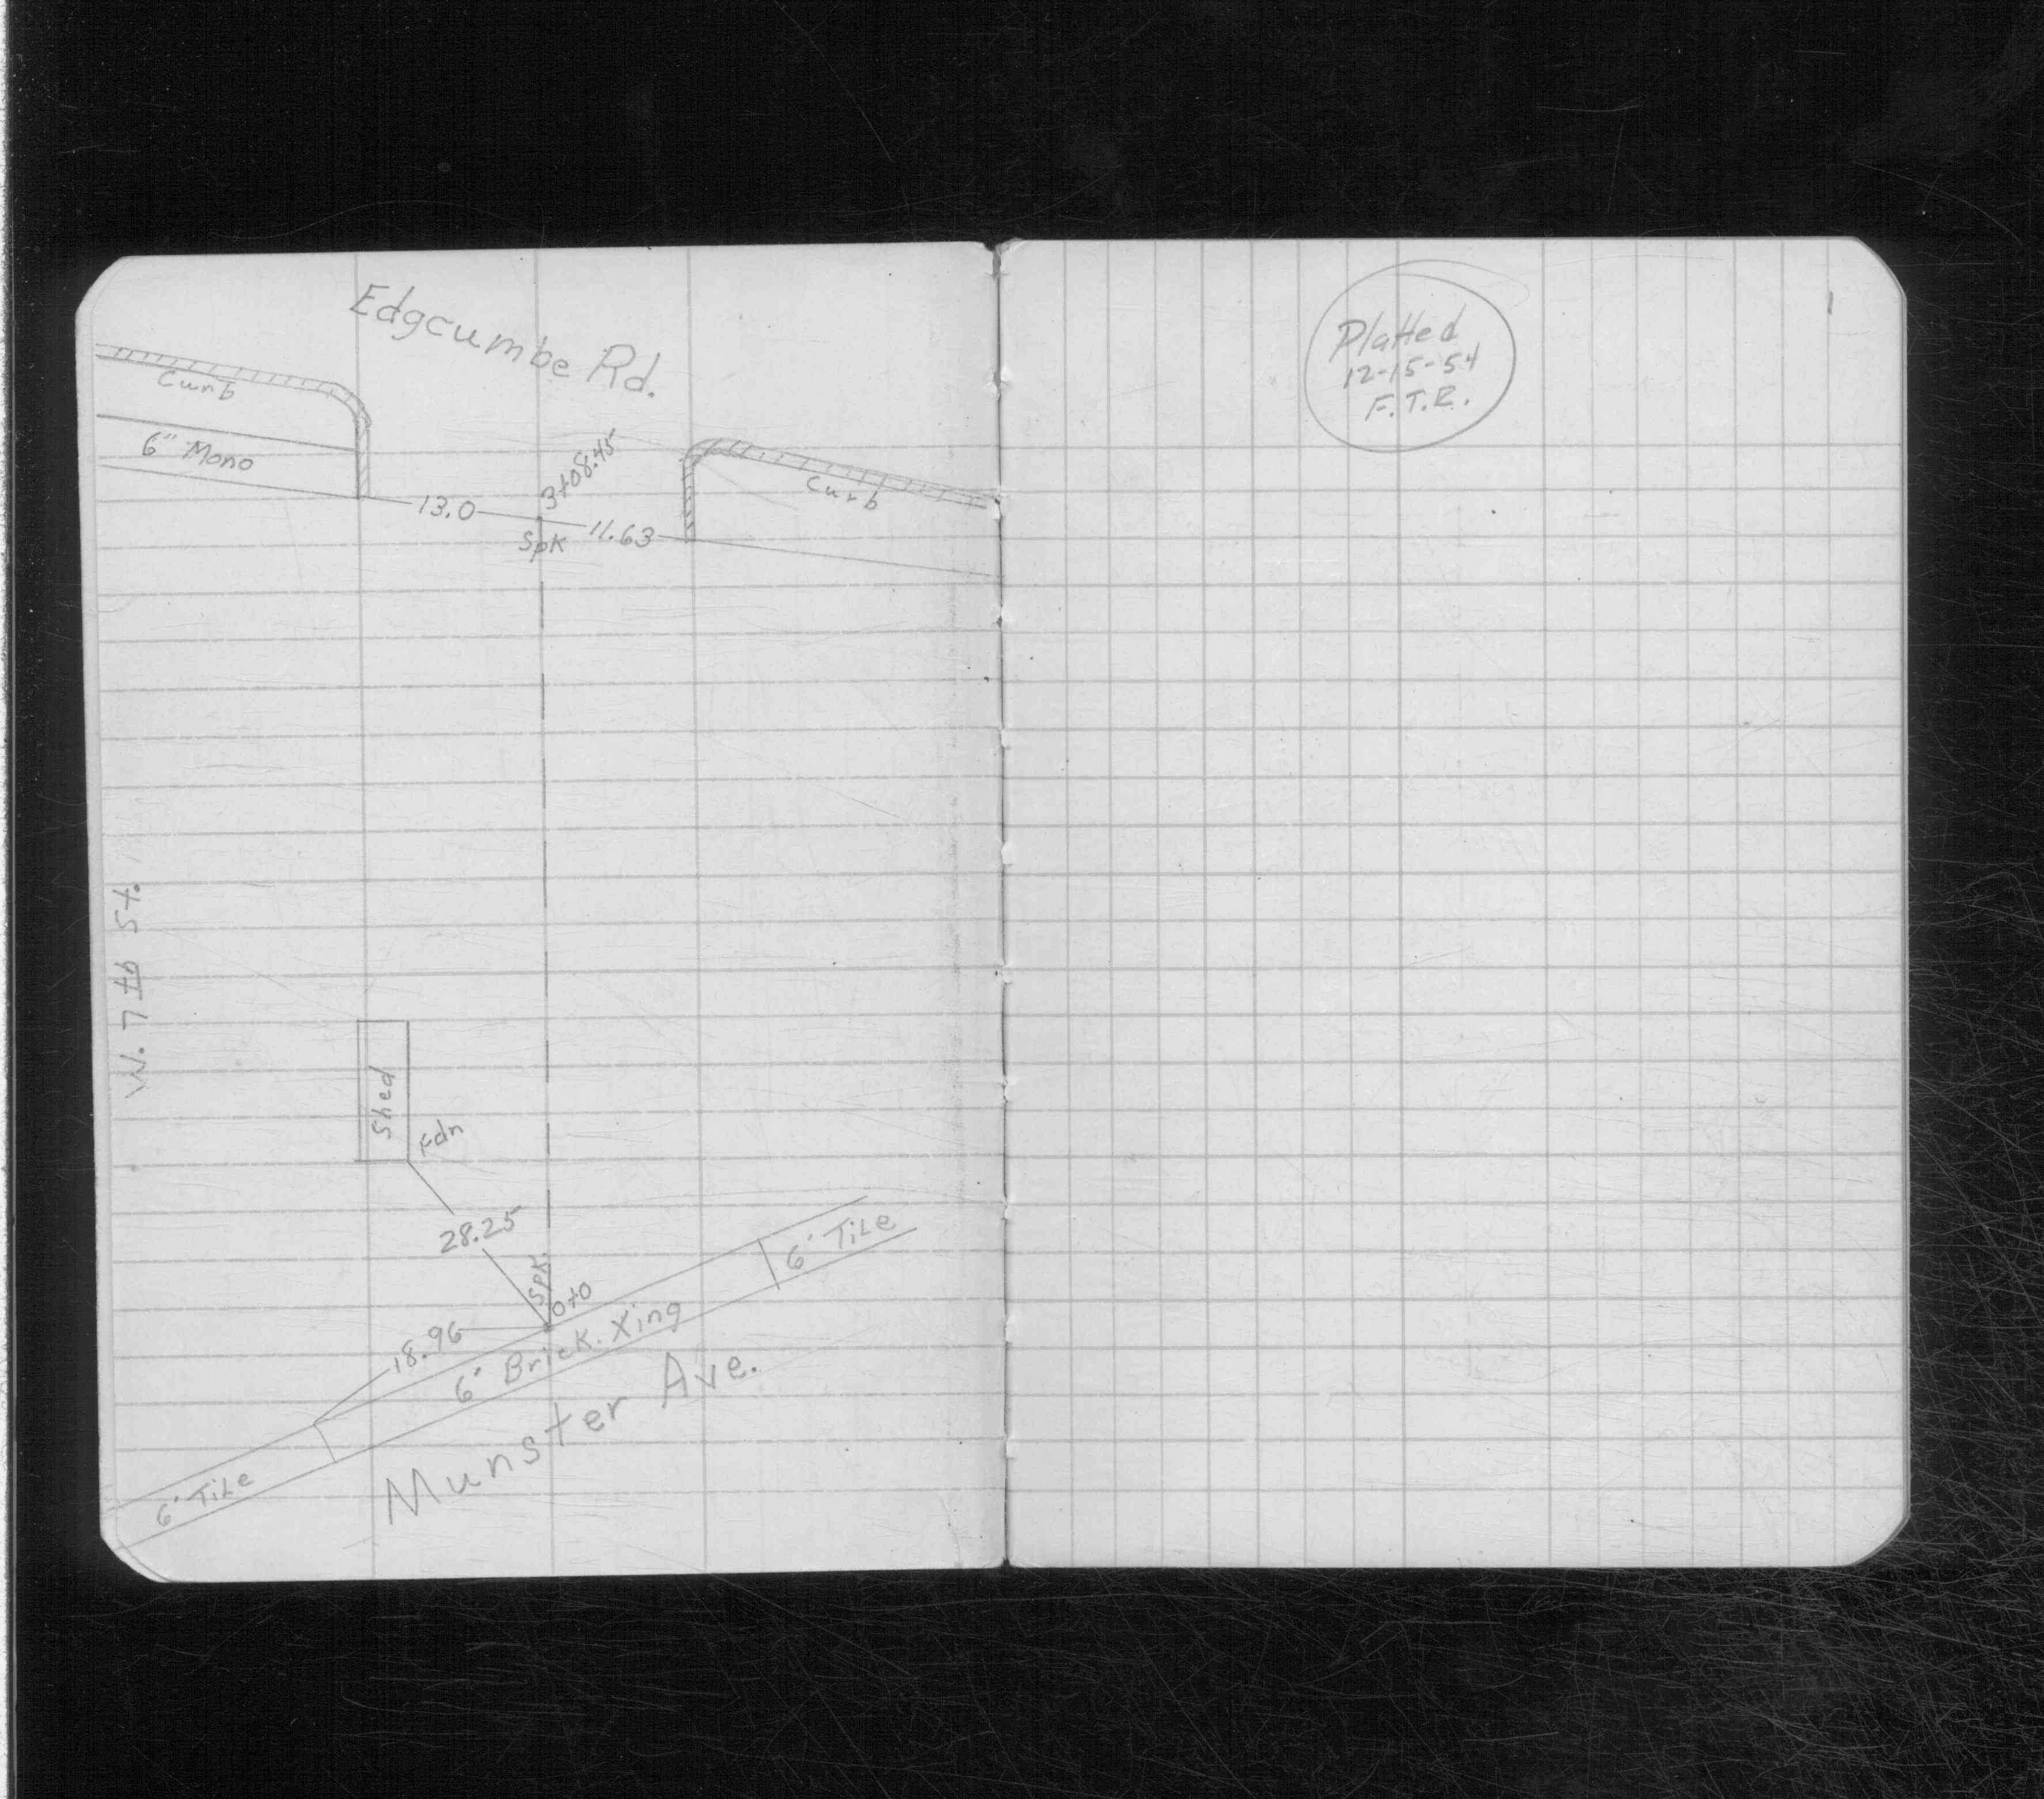 Edgcumbe Rd.
Curb
6" Mono
13.0
3+08.45
Spk
11.63
Curb
W. 7th St.
Shed
Fdn
28.25
Spk.
0+0
18.96
6' Brick Xing
6' Tile
6' Tile
Munster Ave.
Platted
12-15-54
F.T.R.
1